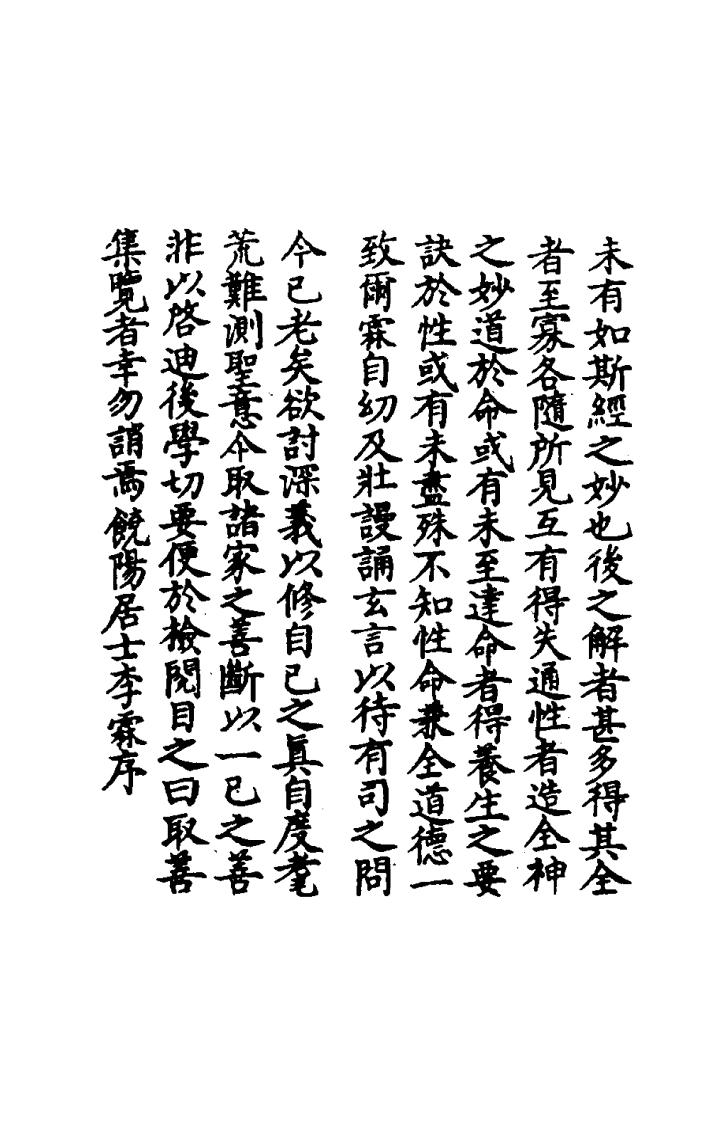 未有如斯經之妙也後之解者甚多得其全
者至寡各隨所見互有得失通性者造全神
之妙道於命或有未至達命者得養生之要
訣於性或有未盡殊不知性命兼全道德一
致爾霖自幼及壯謾誦玄言以待有司之問
今已老矣欲討深義以修自己之真自度耄
荒難測聖意今取諸家之善斷以一己之善
非以啓迪後學切要便於檢閱目之曰取善
集覽者幸勿誚焉饒陽居士李霖序